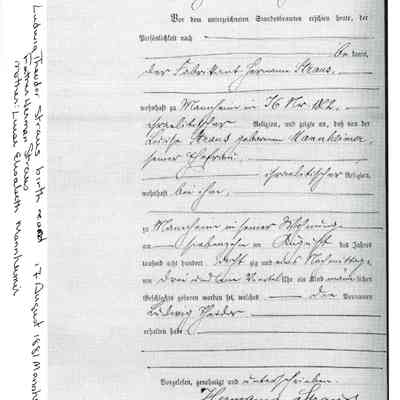 Vor dem unterzeichneten Standesbeamten erschien heute, der
Persönlichkeit nach
bekannt,
der Fabrikant Herman Straus,
wohnhaft zu Mannheim in
israelitischer Religion, und zeigte an, daß von der
Luise Straus geborenen Mannheimer,
seiner Ehefrau,
israelitischer Religion,
wohnhaft bei ihm,
zu Mannheim in seiner Wohnung
am siebenzehn ten August des Jahres
tausend acht hundert acht zig und eins Nachmittags
um drei und ein Viertel Uhr ein Kind männlichen
Geschlechts geboren worden sei, welches die Vornamen
Ludwig Theodor
erhalten habe
Vorgelesen, genehmigt und unterschrieben.
Hermann Straus
Ludwig Theodor Straus birth record 17 August 1881
Father: Herman Straus
mother: Luise Elisabeth Mannheimer